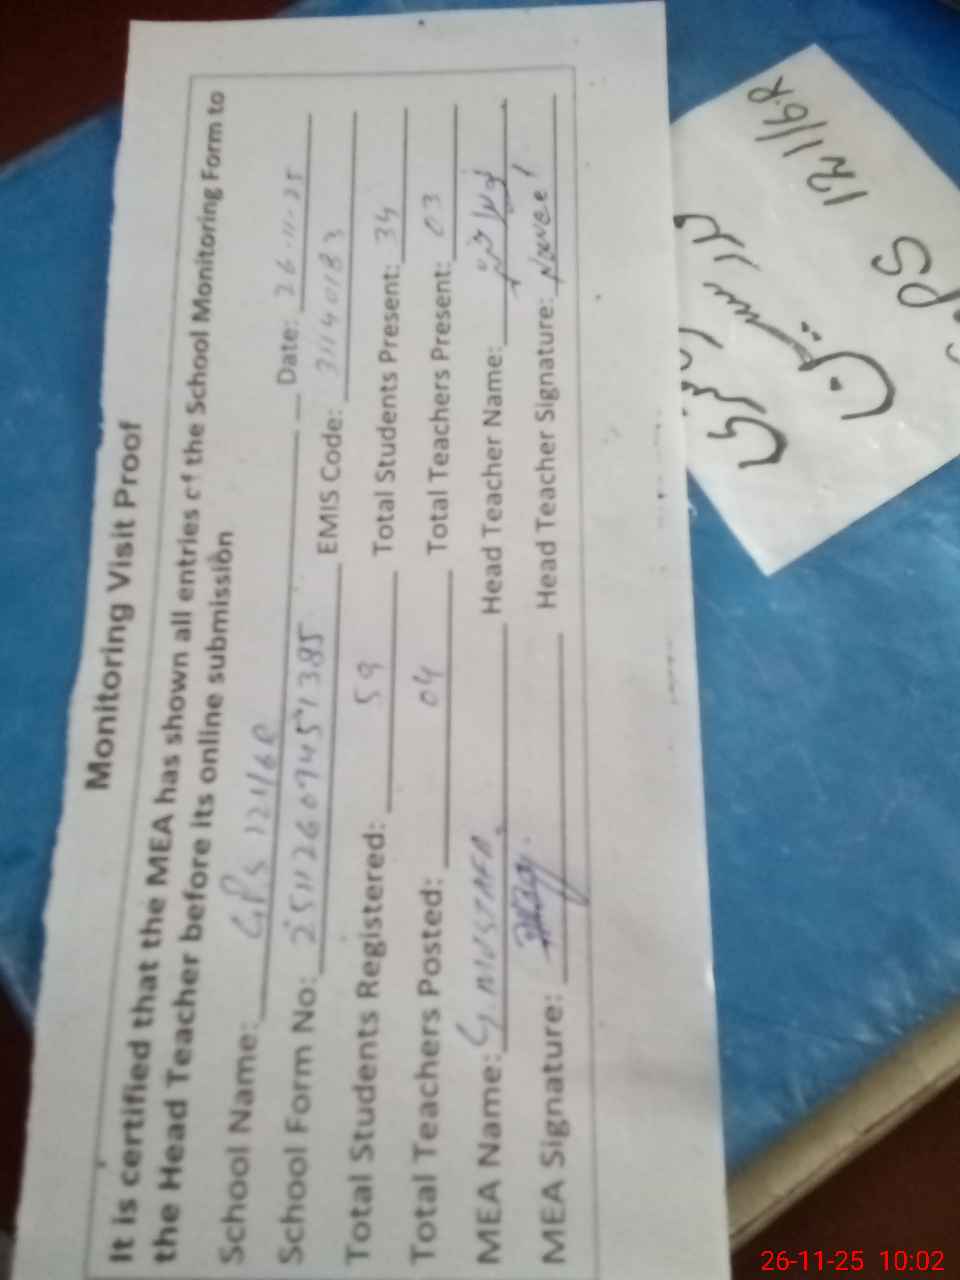 Monitoring Visit Proof
It is certified that the MEA has shown all entries of the School Monitoring Form to
the Head Teacher before its online submission
School Name: GPS 121/6R Date: 26-11-25
School Form No: 25112607451385 EMIS Code: 31140183
Total Students Registered: 59 Total Students Present: 34
Total Teachers Posted: 04 Total Teachers Present: 03
MEA Name: G MUSTAFA Head Teacher Name:
MEA Signature: Head Teacher Signature:
PS 121/6R
26-11-25 10:02